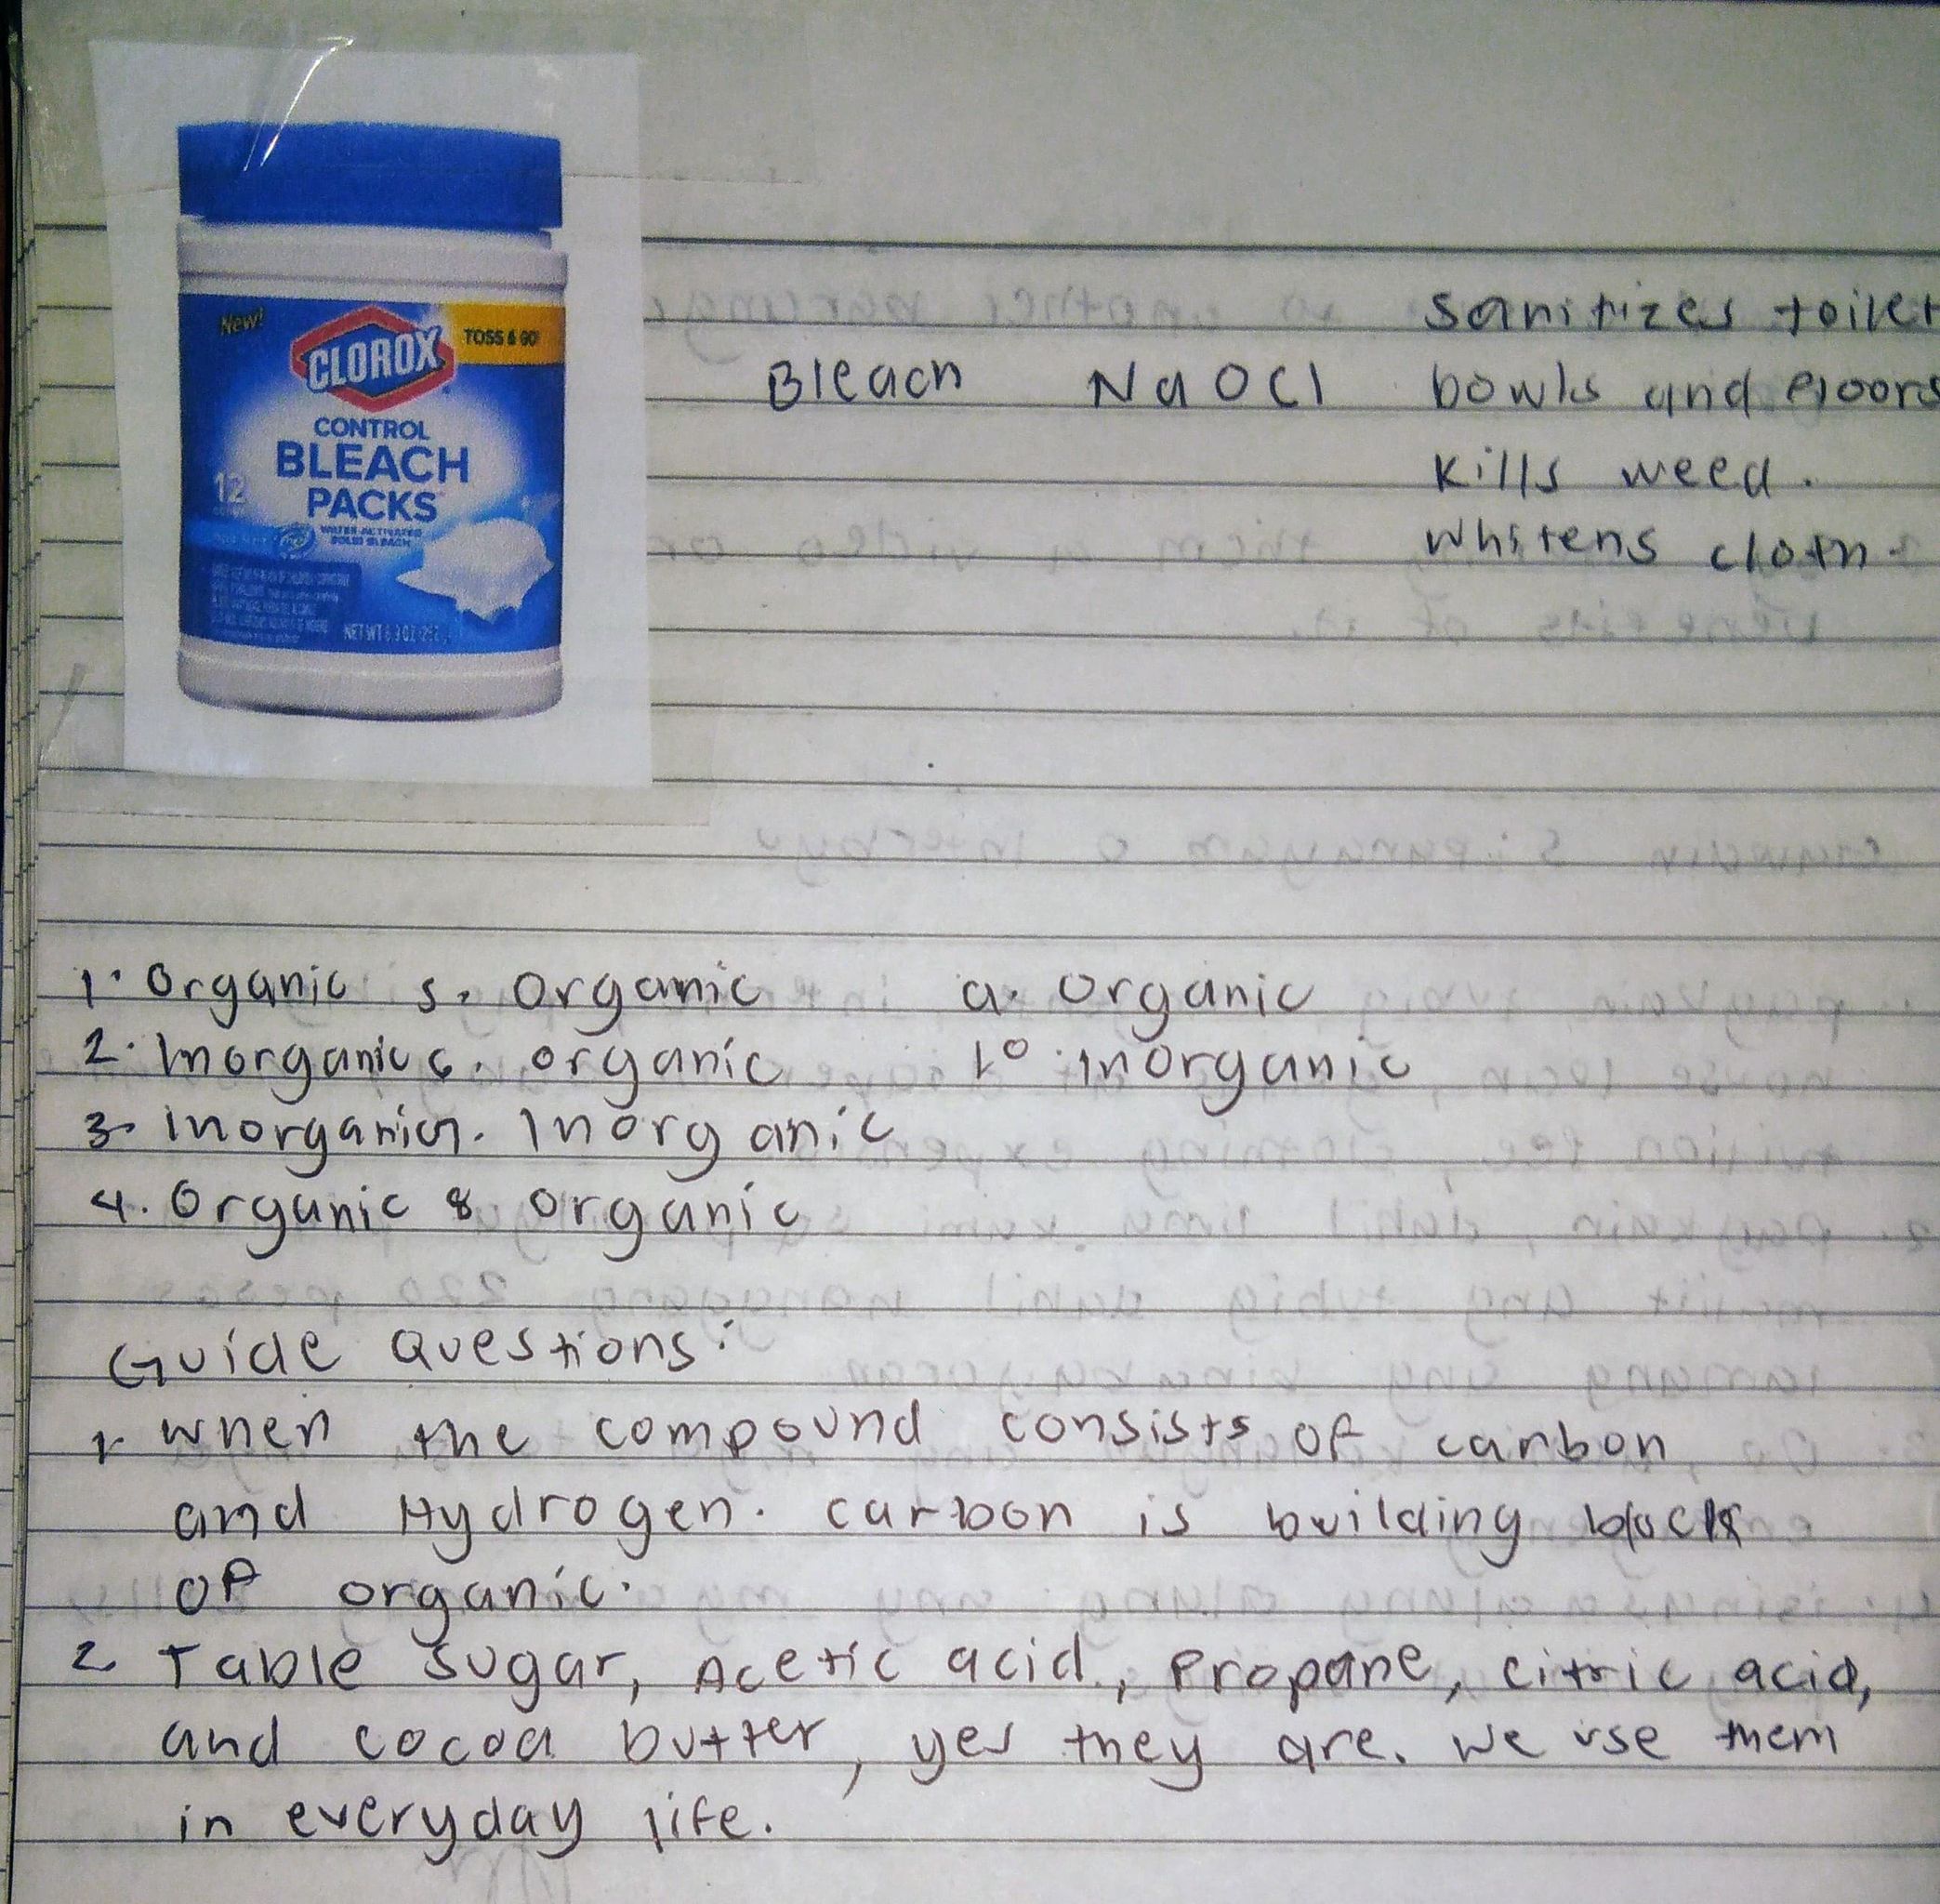 New!
TOSS & GO
CLOROX
CONTROL
BLEACH
12
PACKS
WATER-ACTIVATED
SOLID BLEACH
NET WT
Sanitizes toilet
Bleach NaOCl bowls and floors
Kills weed.
Whitens cloth.
1. Organic 5. Organic 9. Organic
2. Inorganic 6. Organic 10. inorganic
3. inorganic 7. Inorganic
4. Organic 8 organic
Guide Questions:
1. When the compound consists of carbon
and Hydrogen. carbon is building block
of organic.
2 Table sugar, Acetic acid, Propane, citric acid,
and cocoa butter, yes they are. We use them
in everyday life.